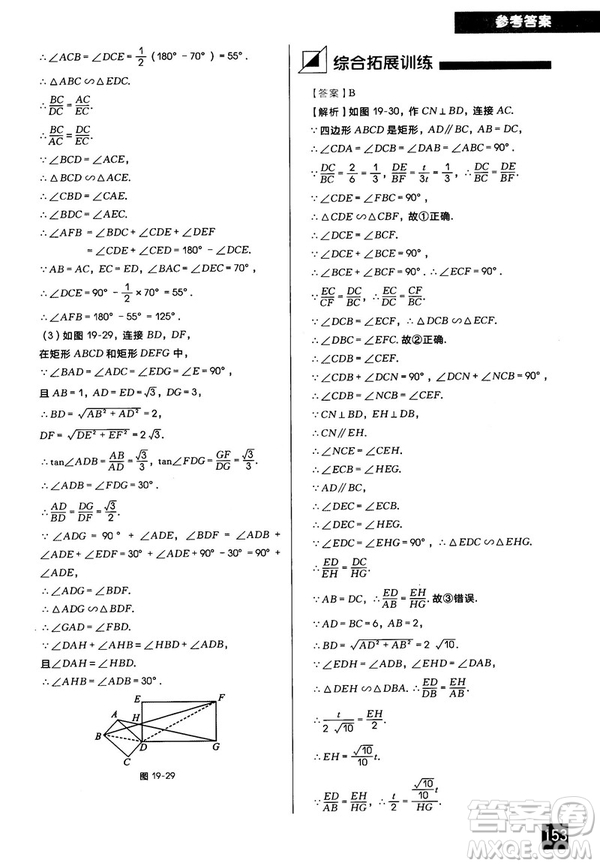 参考答案
∴∠ACB=∠DCE=1/2(180°-70°)=55°.
∴△ABC∽△EDC.
∴BC/DC=AC/EC.
∴BC/AC=DC/EC.
∵∠BCD=∠ACE,
∴△BCD∽△ACE.
∴∠CBD=∠CAE.
∴∠BDC=∠AEC.
∴∠AFB=∠BDC+∠CDE+∠DEF
=∠CDE+∠CED=180°-∠DCE.
∵AB=AC,EC=ED,∠BAC=∠DEC=70°,
∴∠DCE=90°-1/2×70°=55°.
∴∠AFB=180°-55°=125°.
(3)如图19-29,连接BD,DF,
在矩形ABCD和矩形DEFG中,
∵∠BAD=∠ADC=∠EDG=90°,
且AB=1,AD=ED=√3,DG=3,
∴BD=√(AB²+AD²)=2,
DF=√(DE²+EF²)=2√3.
∴tan∠ADB=AB/AD=√3/3,tan∠FDG=GF/DG=√3/3.
∴∠ADB=∠FDG=30°.
∴AD/BD=DG/DF=√3/2.
∵∠ADG=90°+∠ADE,∠BDF=∠ADB+
∠ADE+∠EDF=∠ADB+90°-∠FDG+
∠ADE=90°+∠ADE,
∴∠ADG=∠BDF.
∴△ADG∽△BDF.
∴∠GAD=∠FBD.
∵∠DAH+∠AHB=∠HBD+∠ADB,
且∠DAH=∠HBD,
∴∠AHB=∠ADB=30°.
E F
A H
B D G
C
图 19-29
综合拓展训练
【答案】B
【解析】如图19-30,作CN⊥BD,连接AC.
∵四边形ABCD是矩形,AD∥BC,AB=DC,
∴∠CDA=∠CDE=∠ABC=∠CBF=90°.
∵DC/BC=2/6=1/3,DE/BF=t/3t=1/3,∴DC/BC=DE/BF.
∵∠CDE=∠FBC=90°,
∴△CDE∽△CBF,故①正确.
∴∠DCE=∠BCF.
∵∠DCE+∠BCE=90°,
∴∠BCE+∠BCF=∠ECF=90°.
∵EC/CF=DC/BC,∴EC/DC=CF/BC.
∵∠DCB=∠ECF,
∴△DCB∽△ECF.
∴∠DBC=∠EFC.故②正确.
∴∠CDB=∠CEF.
∵∠CDB+∠CDN=90°,∠DCN+∠NCB=90°,
∴∠CDB=∠NCB=∠CEF.
∵CN⊥BD,HE⊥BD,
∴CN∥EH.
∴∠NCE=∠CEH.
∴∠NCB+∠BCE=∠FEC+∠FEH.
∴∠BCE=∠FEH.
∵AD∥BC,
∴∠DEC=∠BCE.
∴∠DEC=∠FEH.
∵∠EDC=∠EHG=90°,∴△EDC∽△EHG.
∴ED/EH=DC/HG.
∵AB=DC,∴ED/AB=EH/HG.故③错误.
∵AD=BC=6,AB=2,
∴BD=√(AD²+AB²)=2√10.
∵∠EDH=∠ADB,∠EHD=∠BAD,
∴△DEH∽△DBA.∴ED/DB=EH/AB.
∴t/2√10=EH/2.
∴EH=√10/10t.
∵ED/AB=EH/HG,∴t/2=√10/10t/HG.
153